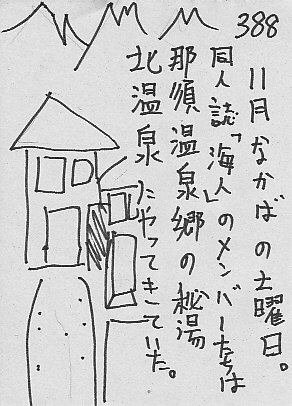 388
11月なかばの土曜日。
同人誌「海人」のメンバーたちは
那須温泉郷の秘湯
北温泉にやってきていた。